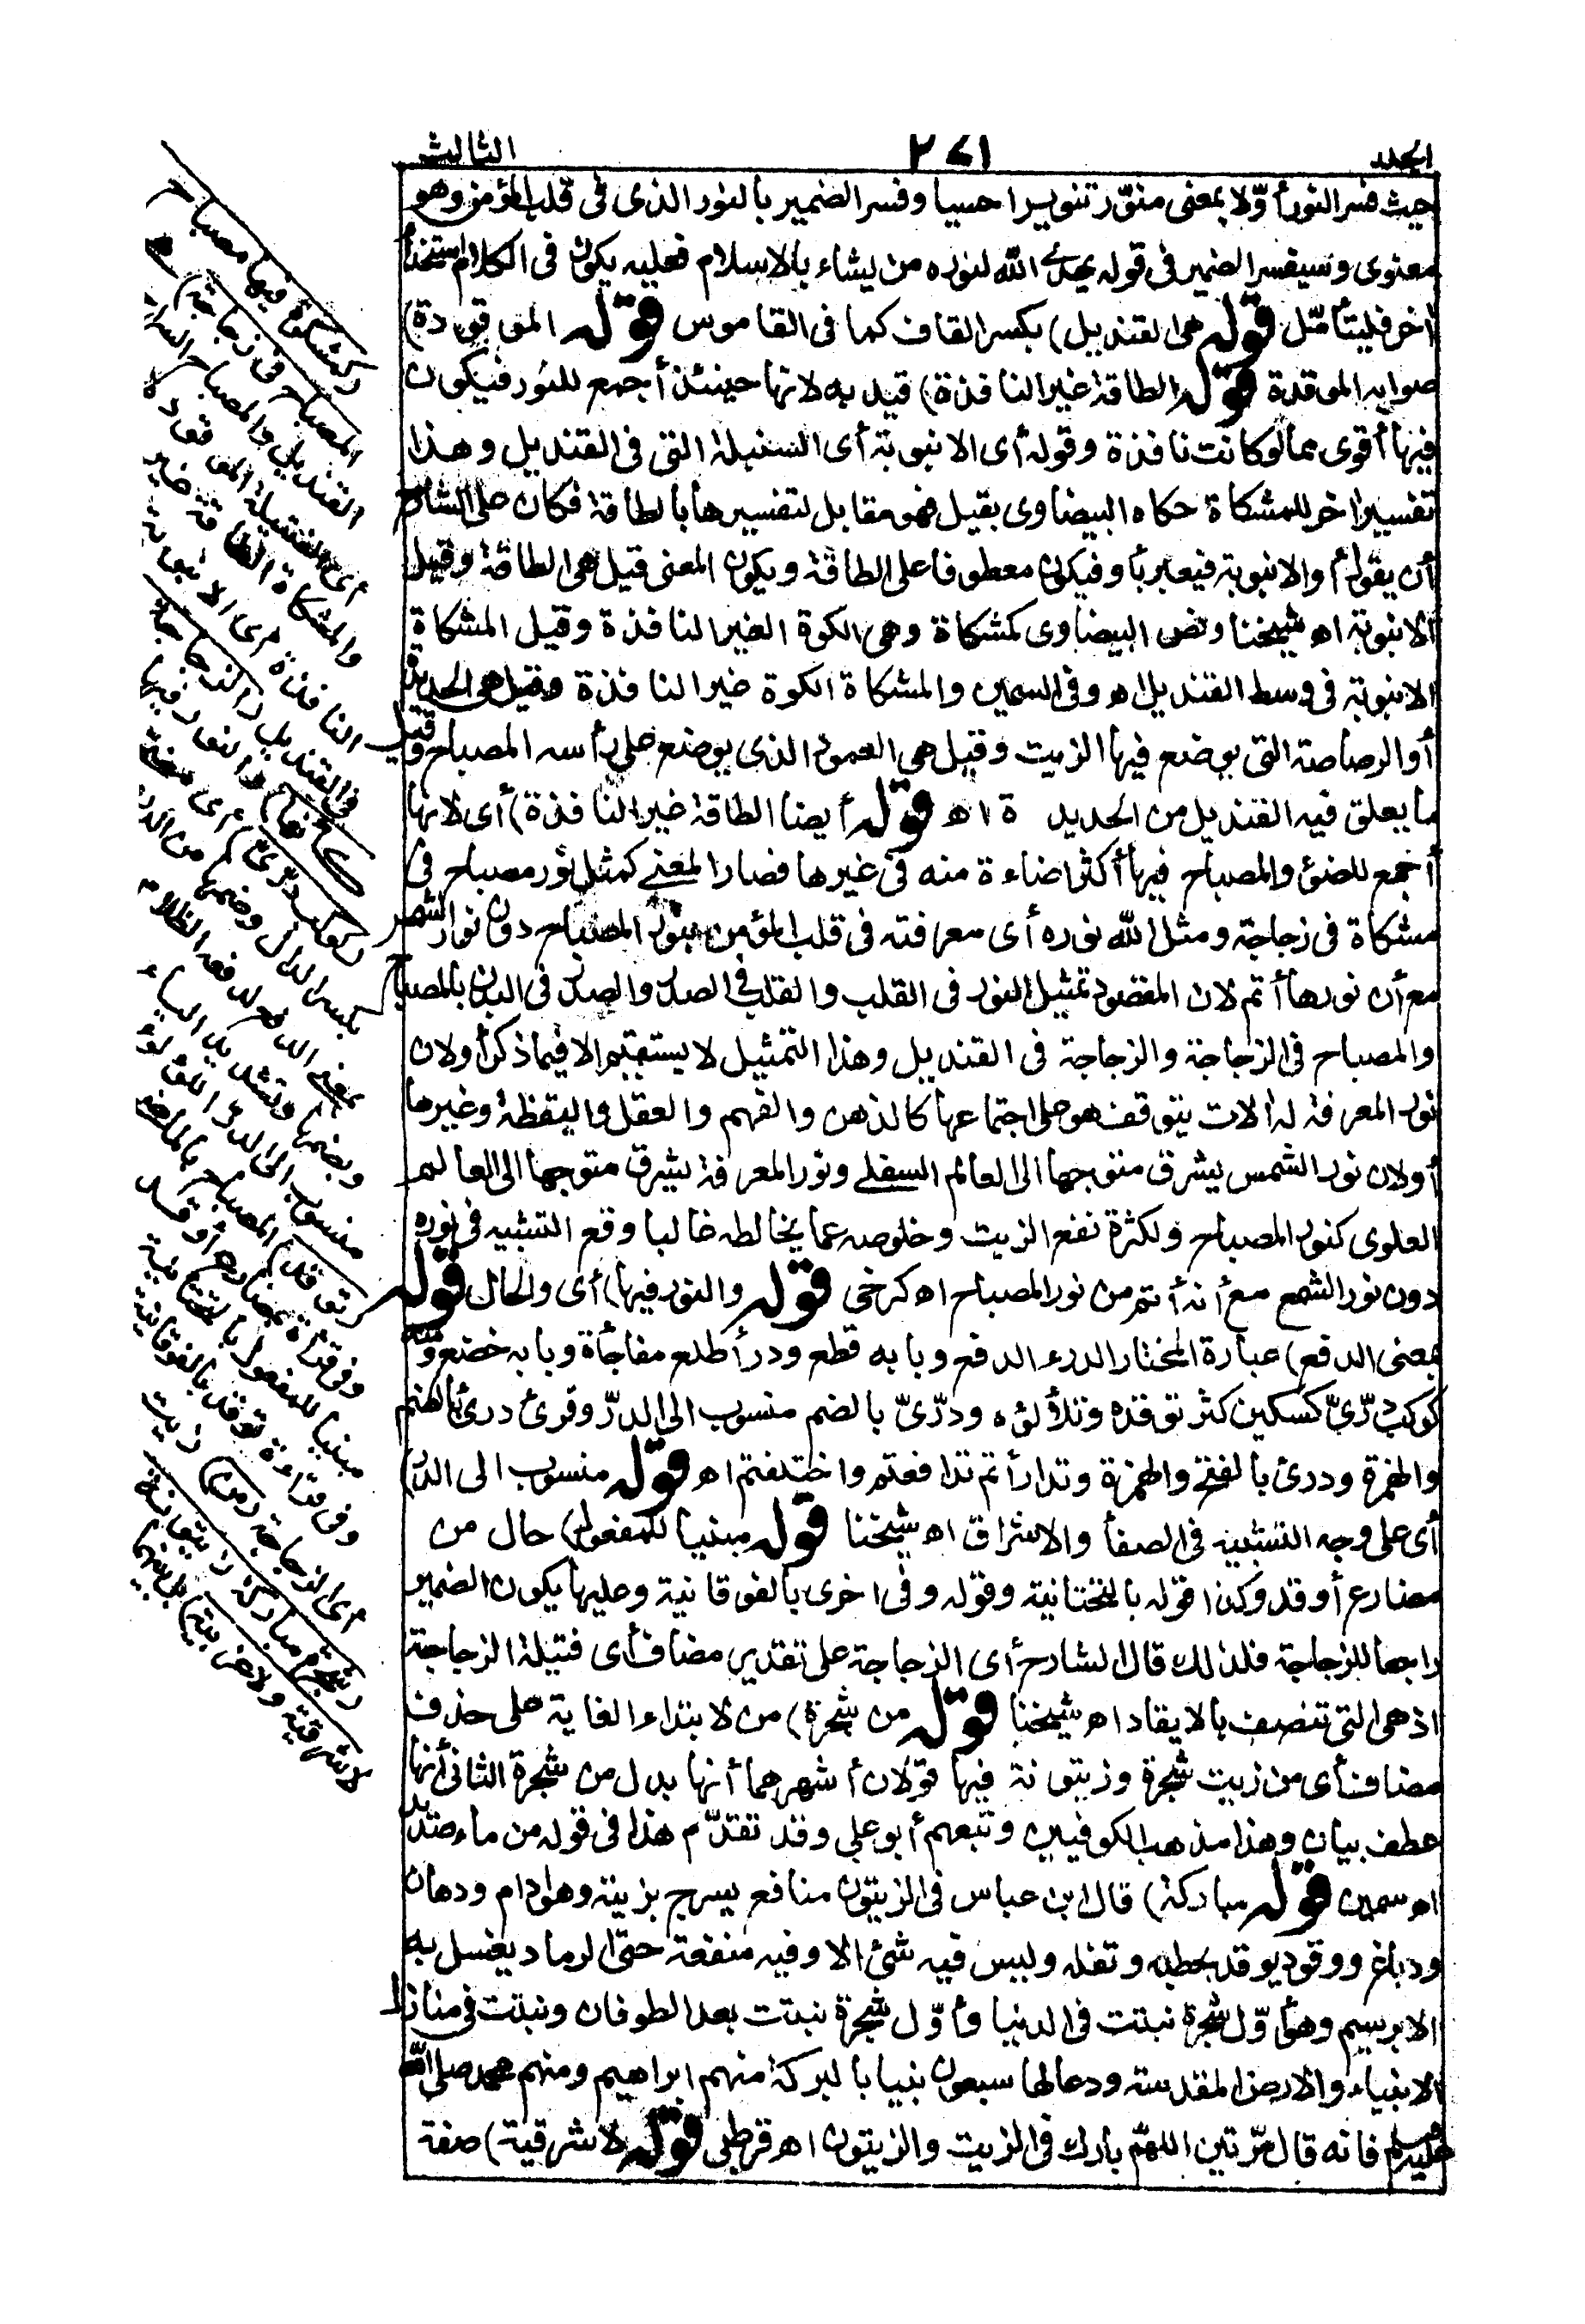 الجلد ٢٧١ الثالث
حيث فسر النور أوّلا بمعنى منوّر تنويرا حسيا وفسر الضمير بالنور الذى فى قلب المؤمن وهو
معنوى وسيفسر الضمير فى قوله يهدى الله لنوره من يشاء بالاسلام فعليه يكون فى الكلام استخداما
اخر فليتأمّل قوله هى القنديل) بكسر القاف كما فى القاموس قوله الموقودة)
صوابه الموقدة قوله الطاقة غير النافذة) قيد به لانها حينئذ أجمع للنور فيكون
فيها أقوى مما لو كانت نافذة وقوله أى الانبوبة أى السنبلة التى فى القنديل وهذا
تفسير اخر للمشكاة حكاه البيضاوى بقيل فهو مقابل لتفسيرها بالطاقة فكان على الشارح
أن يقول أو الانبوبة فيعبر بأو فيكون معطوفا على الطاقة ويكون المعنى قيل هى الطاقة وقيل
الانبوبة اه شيخنا ونص البيضاوى كمشكاة وهى الكوة الغير النافذة وقيل المشكاة
الانبوبة فى وسط القنديل اه وفى السمين والمشكاة الكوة غير النافذة وقيل هى الحديدة
أو الرصاصة التى يوضع فيها الزيت وقيل هى العمود الذى يوضع على رأسه المصباح وقيل
ما يعلق فيه القنديل من الحديدة اه قوله أيضا الطاقة غير النافذة) أى لانها
أجمع للضوء والمصباح فيها أكثر اضاءة منه فى غيرها فصار المعنى كمثل نور مصباح فى
مشكاة فى زجاجة ومثل الله نوره أى معرفته فى قلب المؤمن بنور المصباح دون نور الشمس
مع أن نورها أتم لان المقصود تمثيل النور فى القلب والقلب فى الصدر والصدر فى البدن بالمصباح
والمصباح فى الزجاجة والزجاجة فى القنديل وهذا التمثيل لا يستقيم الا فيما ذكر أو لان
نور المعرفة له الات يتوقف هو على اجتماعها كالذهن والفهم والعقل واليقظة وغيرها
أو لان نور الشمس يشرق متوجها الى العالم السفلى ونور المعرفة يشرق متوجها الى العالم
العلوى كنور المصباح ولكثرة نفع الزيت وخلوصه عما يخالطه غالبا وقع التشبيه فى نوره
دون نور الشمع مع أنه أتم من نور المصباح اه كرخى قوله والنور فيها) أى والحال قوله
بمعنى الدفع) عبارة المختار الدرء الدفع وبابه قطع ودرأ طلع مفاجأة وبابه خضع ومنه
كوكب درّىّ كسكين كثر توقده وتلألؤه ودرّىّ بالضم منسوب الى الدرّ وقرئ درئ بالضم
والهمزة ودرئ بالفتح والهمزة وتدارأتم تدافعتم واختلفتم اه قوله منسوب الى الدر)
أى على وجه التشبيه فى الصفا والاشراق اه شيخنا قوله مبنيا للمفعول) حال من
مضارع أوقد وكذا قوله بالتحتانية وقوله وفى اخرى بالفوقانية وعليها يكون الضمير
راجعا للزجاجة فلذلك قال الشارح أى الزجاجة على تقدير مضاف أى فتيلة الزجاجة
اذ هى التى تتصف بالايقاد اه شيخنا قوله من شجرة) من لابتداء الغاية على حذف
مضاف أى من زيت شجرة وزيتونة فيها قولان أشهرهما أنها بدل من شجرة الثانى أنها
عطف بيان وهذا مذهب الكوفيين وتبعهم أبو على وقد تقدّم هذا فى قوله من ماء صديد
اه سمين قوله مباركة) قال ابن عباس فى الزيتون منافع يسرج بزيته وهو ادام ودهان
ودباغ ووقود يوقد بحطبه وتفله وليس فيه شئ الا وفيه منفعة حتى الرماد يغسل به
الابريسم وهو أوّل شجرة نبتت فى الدنيا وأوّل شجرة نبتت بعد الطوفان ونبتت فى منازل
الانبياء والارض المقدسة ودعا لها سبعون نبيا بالبركة منهم ابراهيم ومنهم محمد صلى الله
عليه وسلم فانه قال مرّتين اللهمّ بارك فى الزيت والزيتون اه قرطبى قوله لا شرقية) صفة
كمشكوة فيها مصباح
المصباح فى زجاجة) هى
القنديل والمصباح السراج
أى الفتيلة الموقودة
والمشكاة الطاقة غير
النافذة أى الانبوبة
فى القنديل (الزجاجة
كأنها) والنور فيها
(كوكب درّىّ) أى مضئ
بكسر الدال وضمها من الدرء
بمعنى الدفع لدفعه الظلام
وبضمها وتشديد الياء
منسوب الى الدرّ اللؤلؤ
(توقد) المصباح بالماضى
وفى قراءة بمضارع أوقد
مبنيا للمفعول بالتحتانية
وفى قراءة توقد بالفوقانية
أى الزجاجة (من) زيت
(شجرة مباركة زيتونة
لا شرقية ولا غربية) بل بينهما